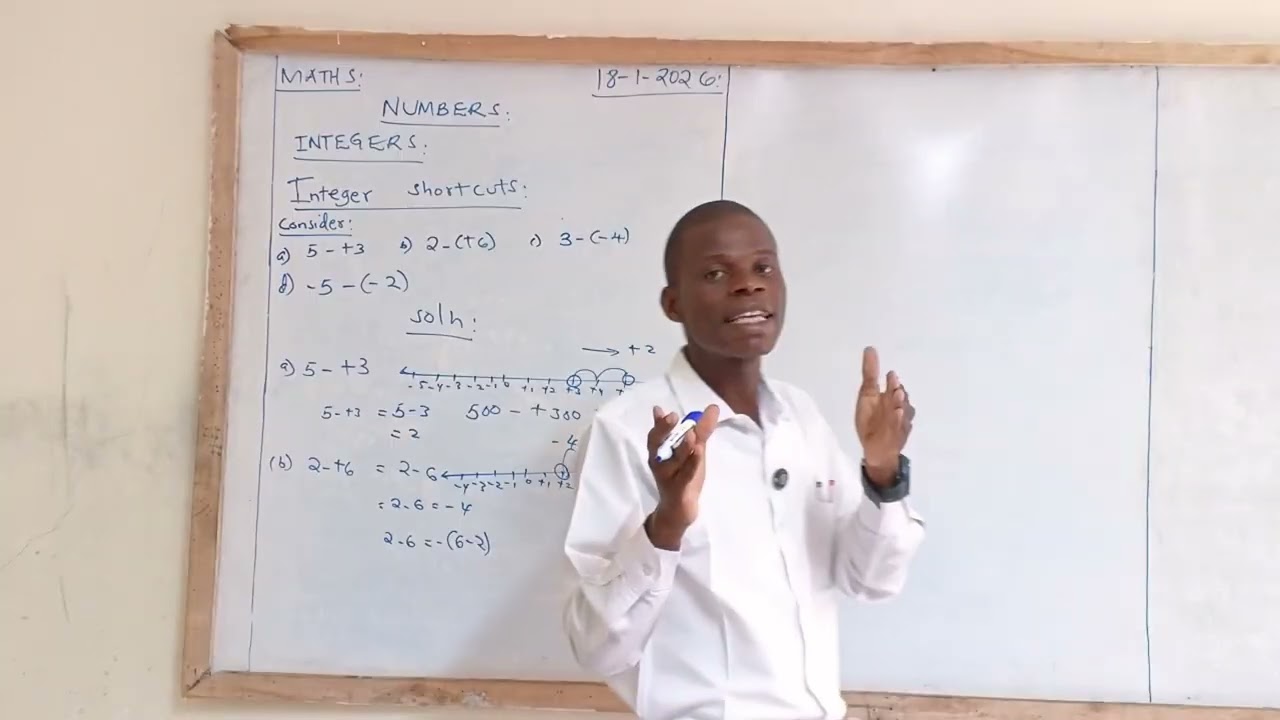 MATHS: 18-1-2026:
NUMBERS:
INTEGERS:
Integer shortcuts:
Consider:
a) 5 - +3 b) 2-(+6) c) 3-(-4)
d) -5 - (-2)
soln:
→ +2
a) 5 - +3 -5 -4 -3 -2 -1 0 +1 +2 +3 +4
5 - +3 = 5-3 500 - +300
= 2 -4
(b) 2 - +6 = 2-6 -4 -3 -2 -1 0 +1 +2
= 2-6 = -4
2-6 = -(6-2)